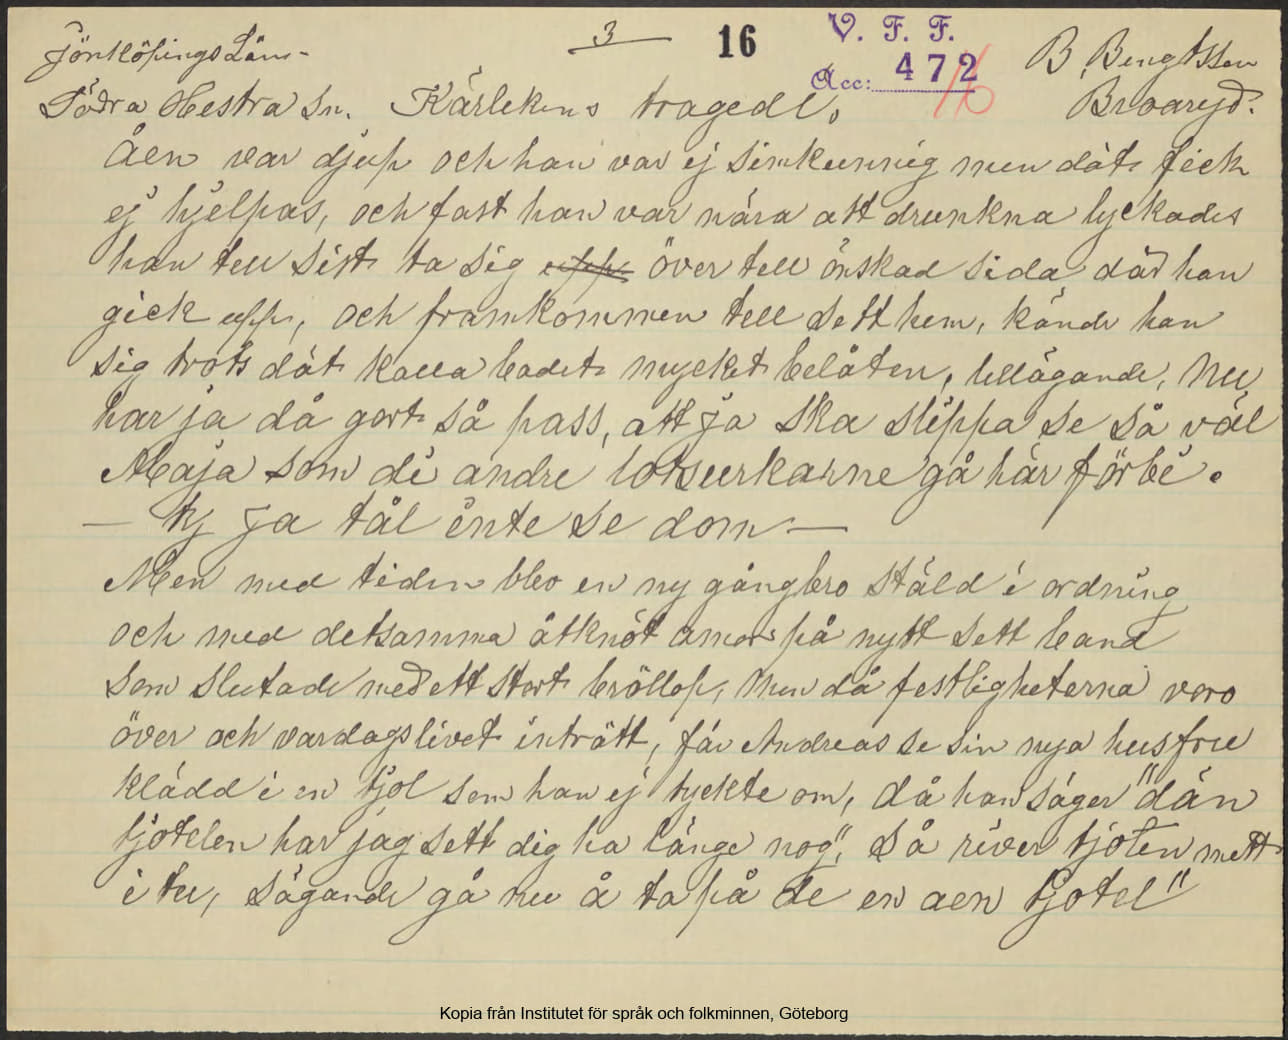 Jönköpings Län-
3
16
V. F. F.
Acc: 472
B. Bengtsson
Södra Hestra Sn. Kärlekens tragedi.
Brvaryd.
Åen var djup och han var ej simkunnig men dät fick
ej hjelpas, och fast han var nära att drunkna lyckades
han tell sist ta sig upp över tell önskad sida där han
gick upp, och framkommen tell sett hem, kände han
sig trots dät kalla badet mycket belåten, tillägande, Nu
har ja då gort så pass, att ja ska slippa se så väl
Maja som di andre lotsurkarne gå här förbi.
— ty ja tål inte se dom —
Men med tiden blev en ny gångbro stäld i ordning
och med detsamma åtknöt amor på nytt sett band
som slutade med ett stort bröllop, Men då festligheterna voro
över och vardagslivet inträtt, får Andreas se sin nya husfru
klädd i en tjol som han ej tyckte om, då han säger "dän
tjotelen har jag sett dig ha länge nog", Så river tjolen mett
i tu, sägande gå nu å ta på de en aen tjotel"
Kopia från Institutet för språk och folkminnen, Göteborg